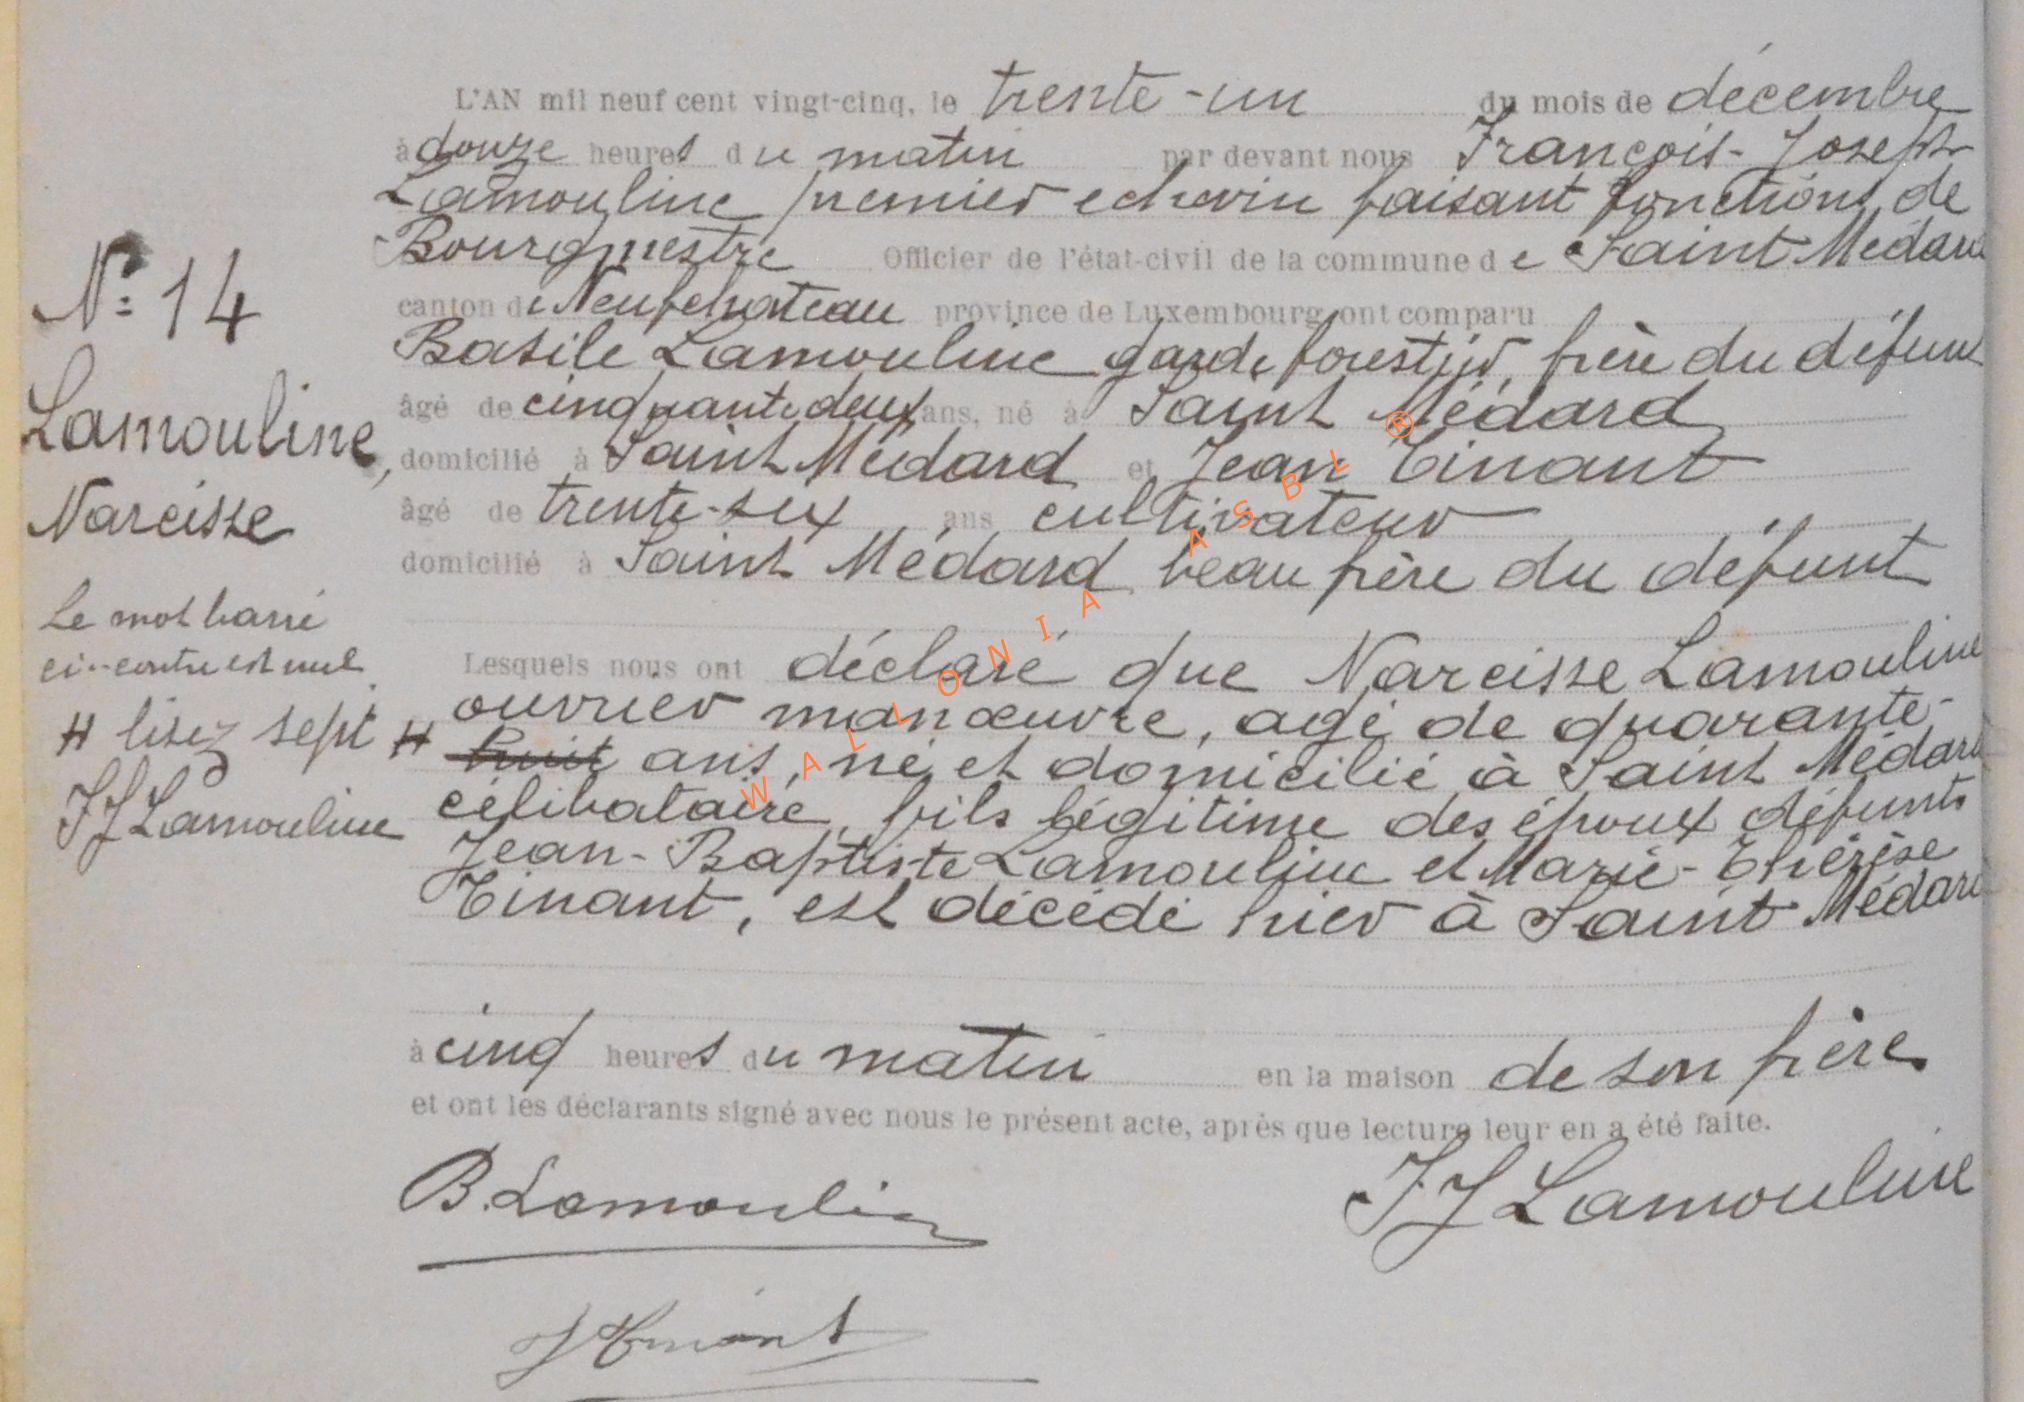 N° 14
Lamouline,
Narcisse
Le mot barré
ci-contre est nul
# lisez sept
FJ Lamouline
L'AN mil neuf cent vingt-cinq, le trente-un du mois de décembre
à douze heures du matin par devant nous François-Joseph
Lamouline premier echevin faisant fonctions de
Bourgmestre Officier de l'état-civil de la commune de Saint Médard
canton de Neufchateau province de Luxembourg ont comparu
Basile Lamouline garde forestier, frère du défunt
âgé de cinquante deux ans, né à Saint Médard
domicilié à Saint Médard et Jean Tinant
âgé de trente-six ans cultivateur
domicilié à Saint Médard beau frère du défunt
Lesquels nous ont déclaré que Narcisse Lamouline
ouvrier manœuvre, agé de quarante-
# huit ans, né et domicilié à Saint Médard
célibataire, fils légitime des époux défunts
Jean-Baptiste Lamouline et Marie-Thérèse
Tinant, est décédé hier à Saint Médard
à cinq heures du matin en la maison de son frère
et ont les déclarants signé avec nous le présent acte, après que lecture leur en a été faite.
B. Lamouline FJ Lamouline
J Tinant
WALLONIA ASBL ®